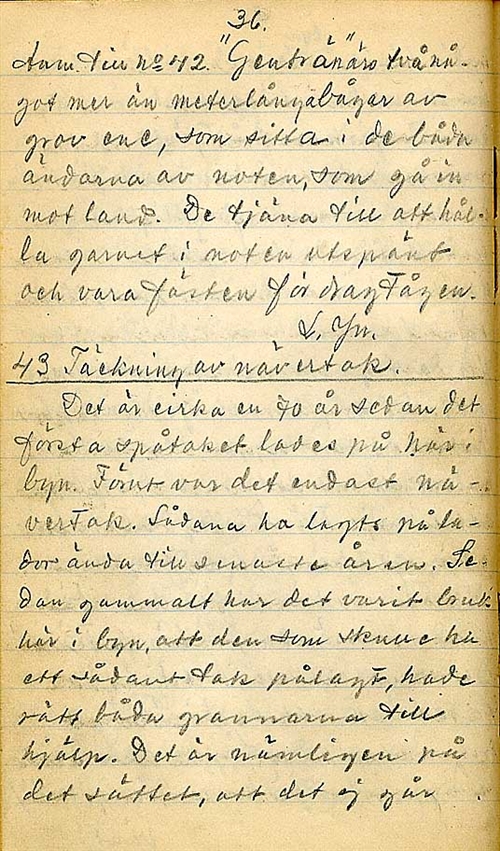 36.
Anm. till nº 42. "Genträn" äro två nå-
got mer än meterlånga bågar av
grov ene, som sitta i de båda
ändarna av noten, som gå in
mot land. De tjäna till att hål-
la garnet i noten utspänt
och vara fästen för dragtågen.
43 Täckning av nävertak.
Det är cirka en 70 år sedan det
första spåtaket lades på här i
byn. Förut var det endast nä-
vertak. Sådana ha lagts på la-
dor ända till senaste åren. Se-
dan gammalt har det varit bruk
här i byn, att den som skulle ha
ett sådant tak pålagt, hade
rätt båda grannarna till
hjälp. Det är nämligen på
det sättet, att det ej går